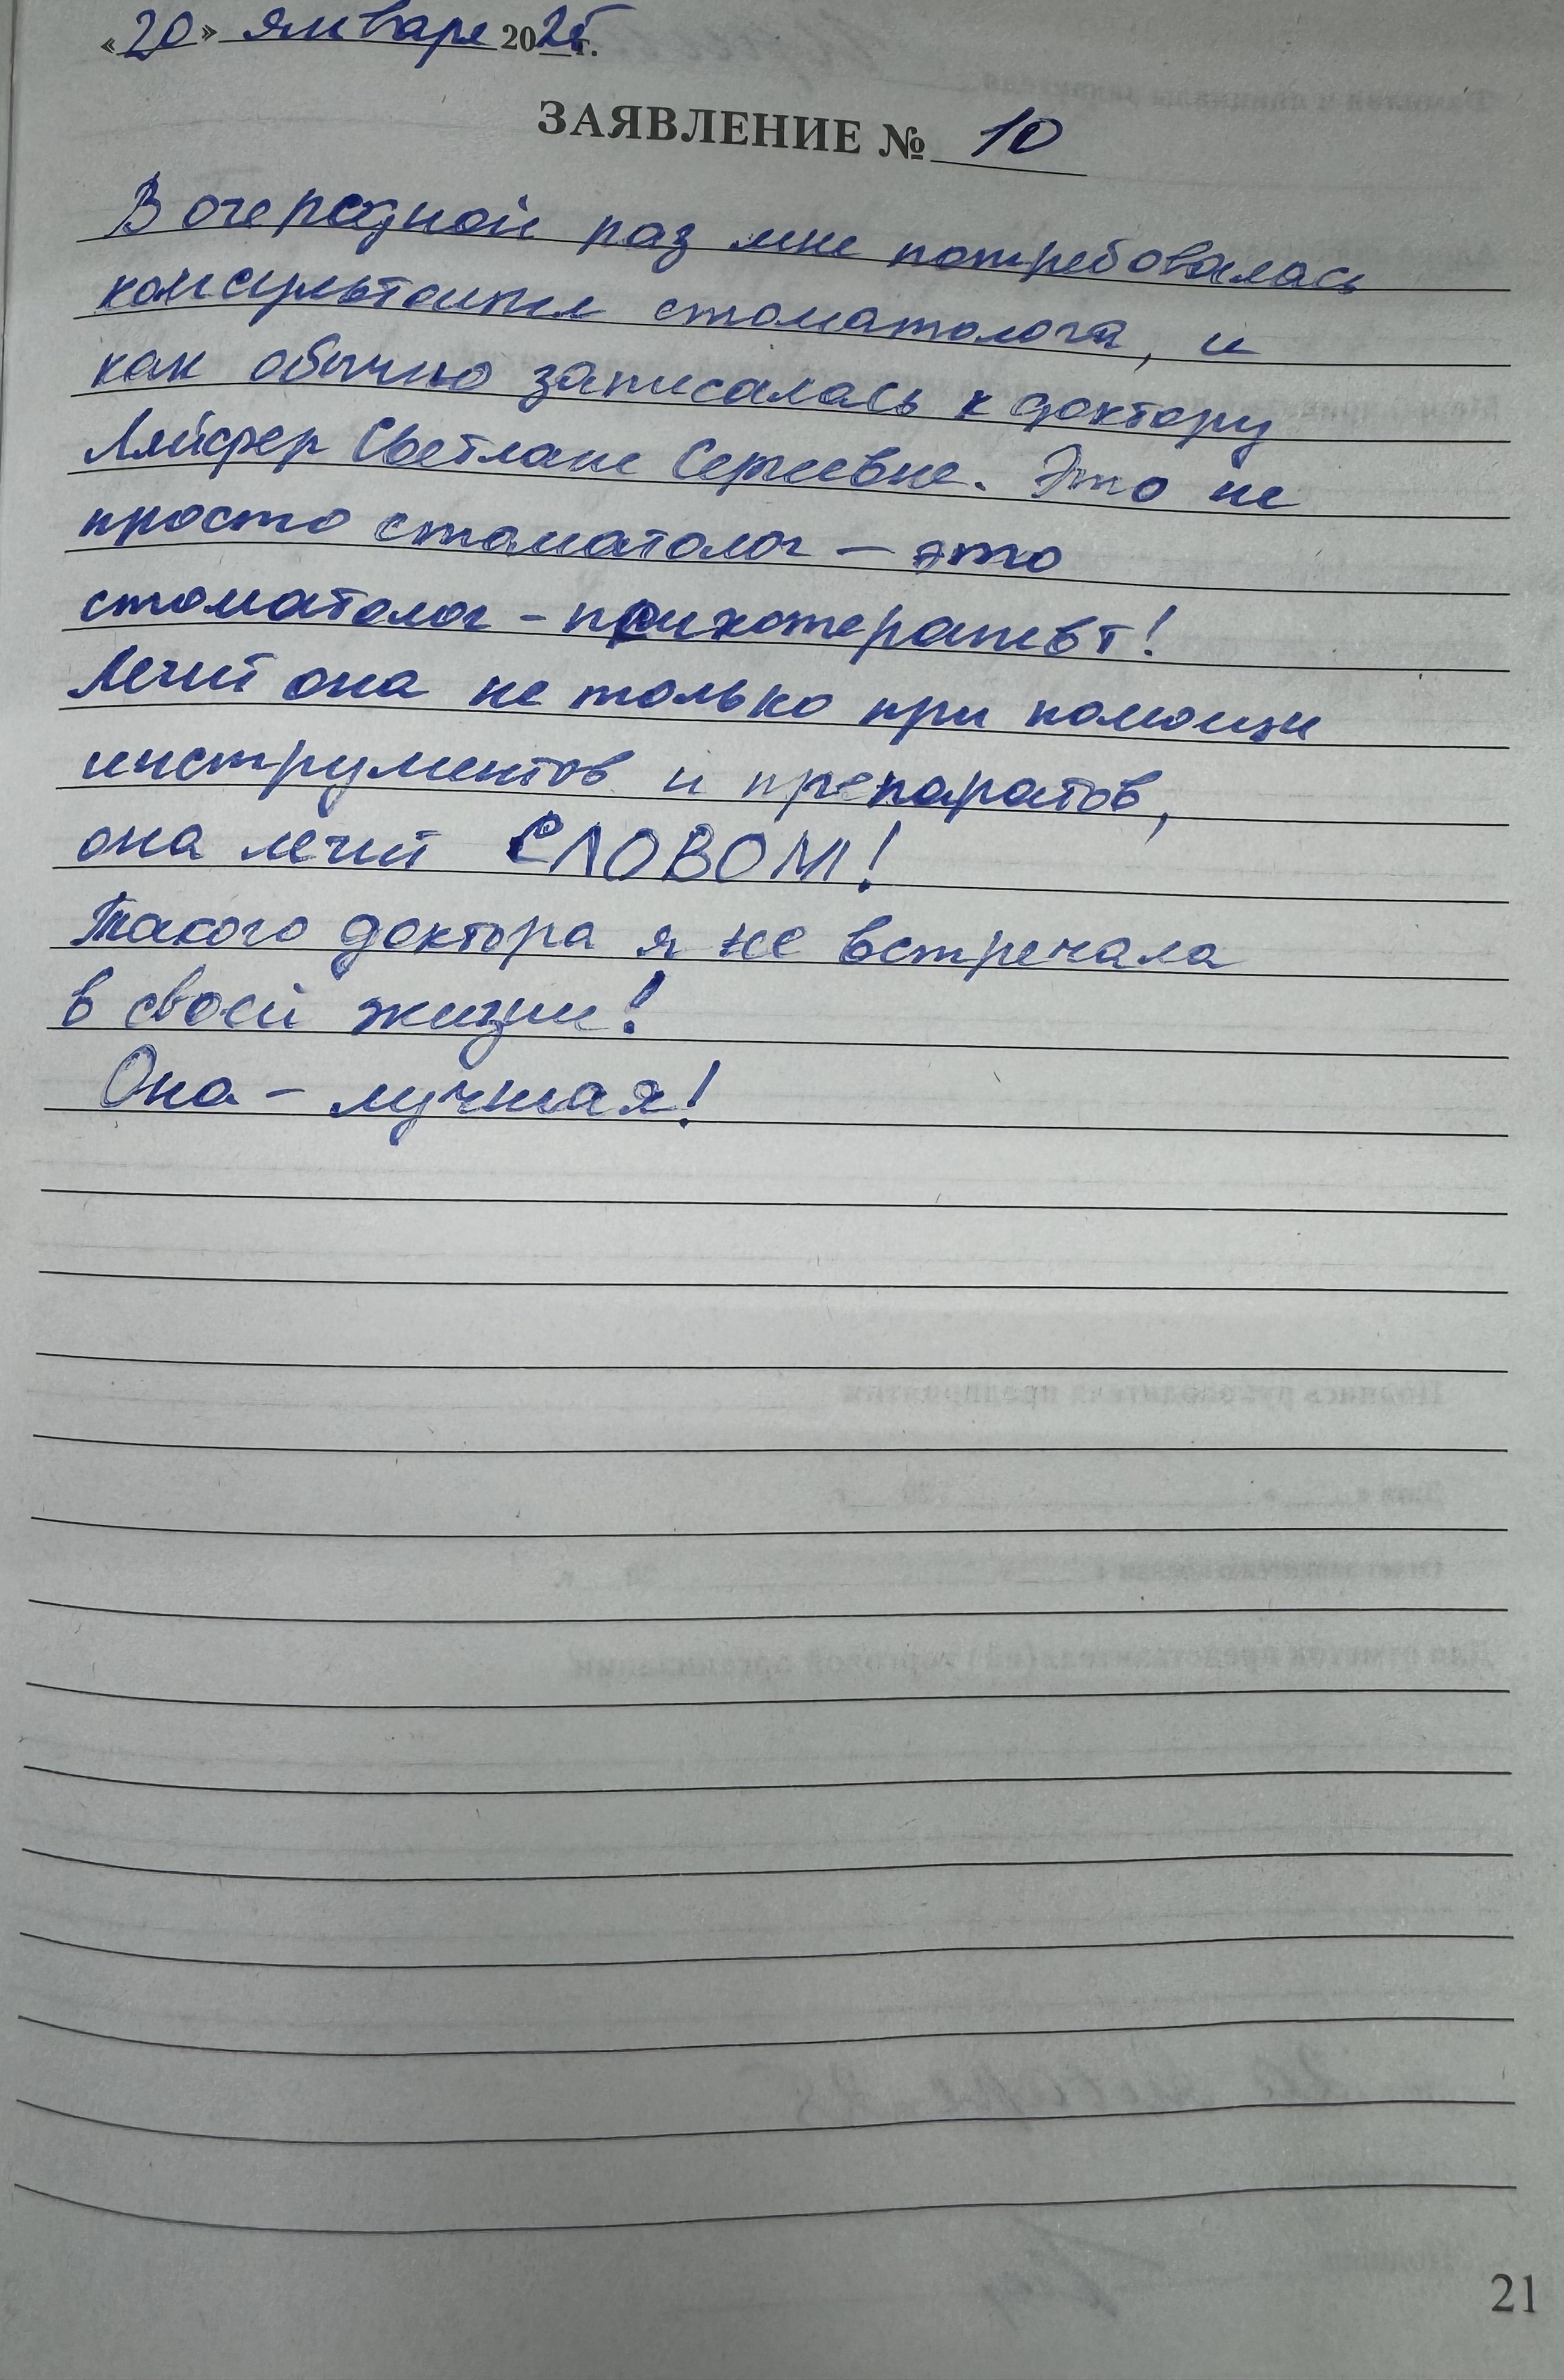 «20» январе 2025 г.
ЗАЯВЛЕНИЕ № 10
В очередной раз мне потребовалась
консультация стоматолога, и
как обычно записалась к доктору
Ляйфер Светлане Сергеевне. Это не
просто стоматолог – это
стоматолог - психотерапевт!
Лечит она не только при помощи
инструментов и препаратов,
она лечит СЛОВОМ!
Такого доктора я не встречала
в своей жизни!
Она – лучшая!
21